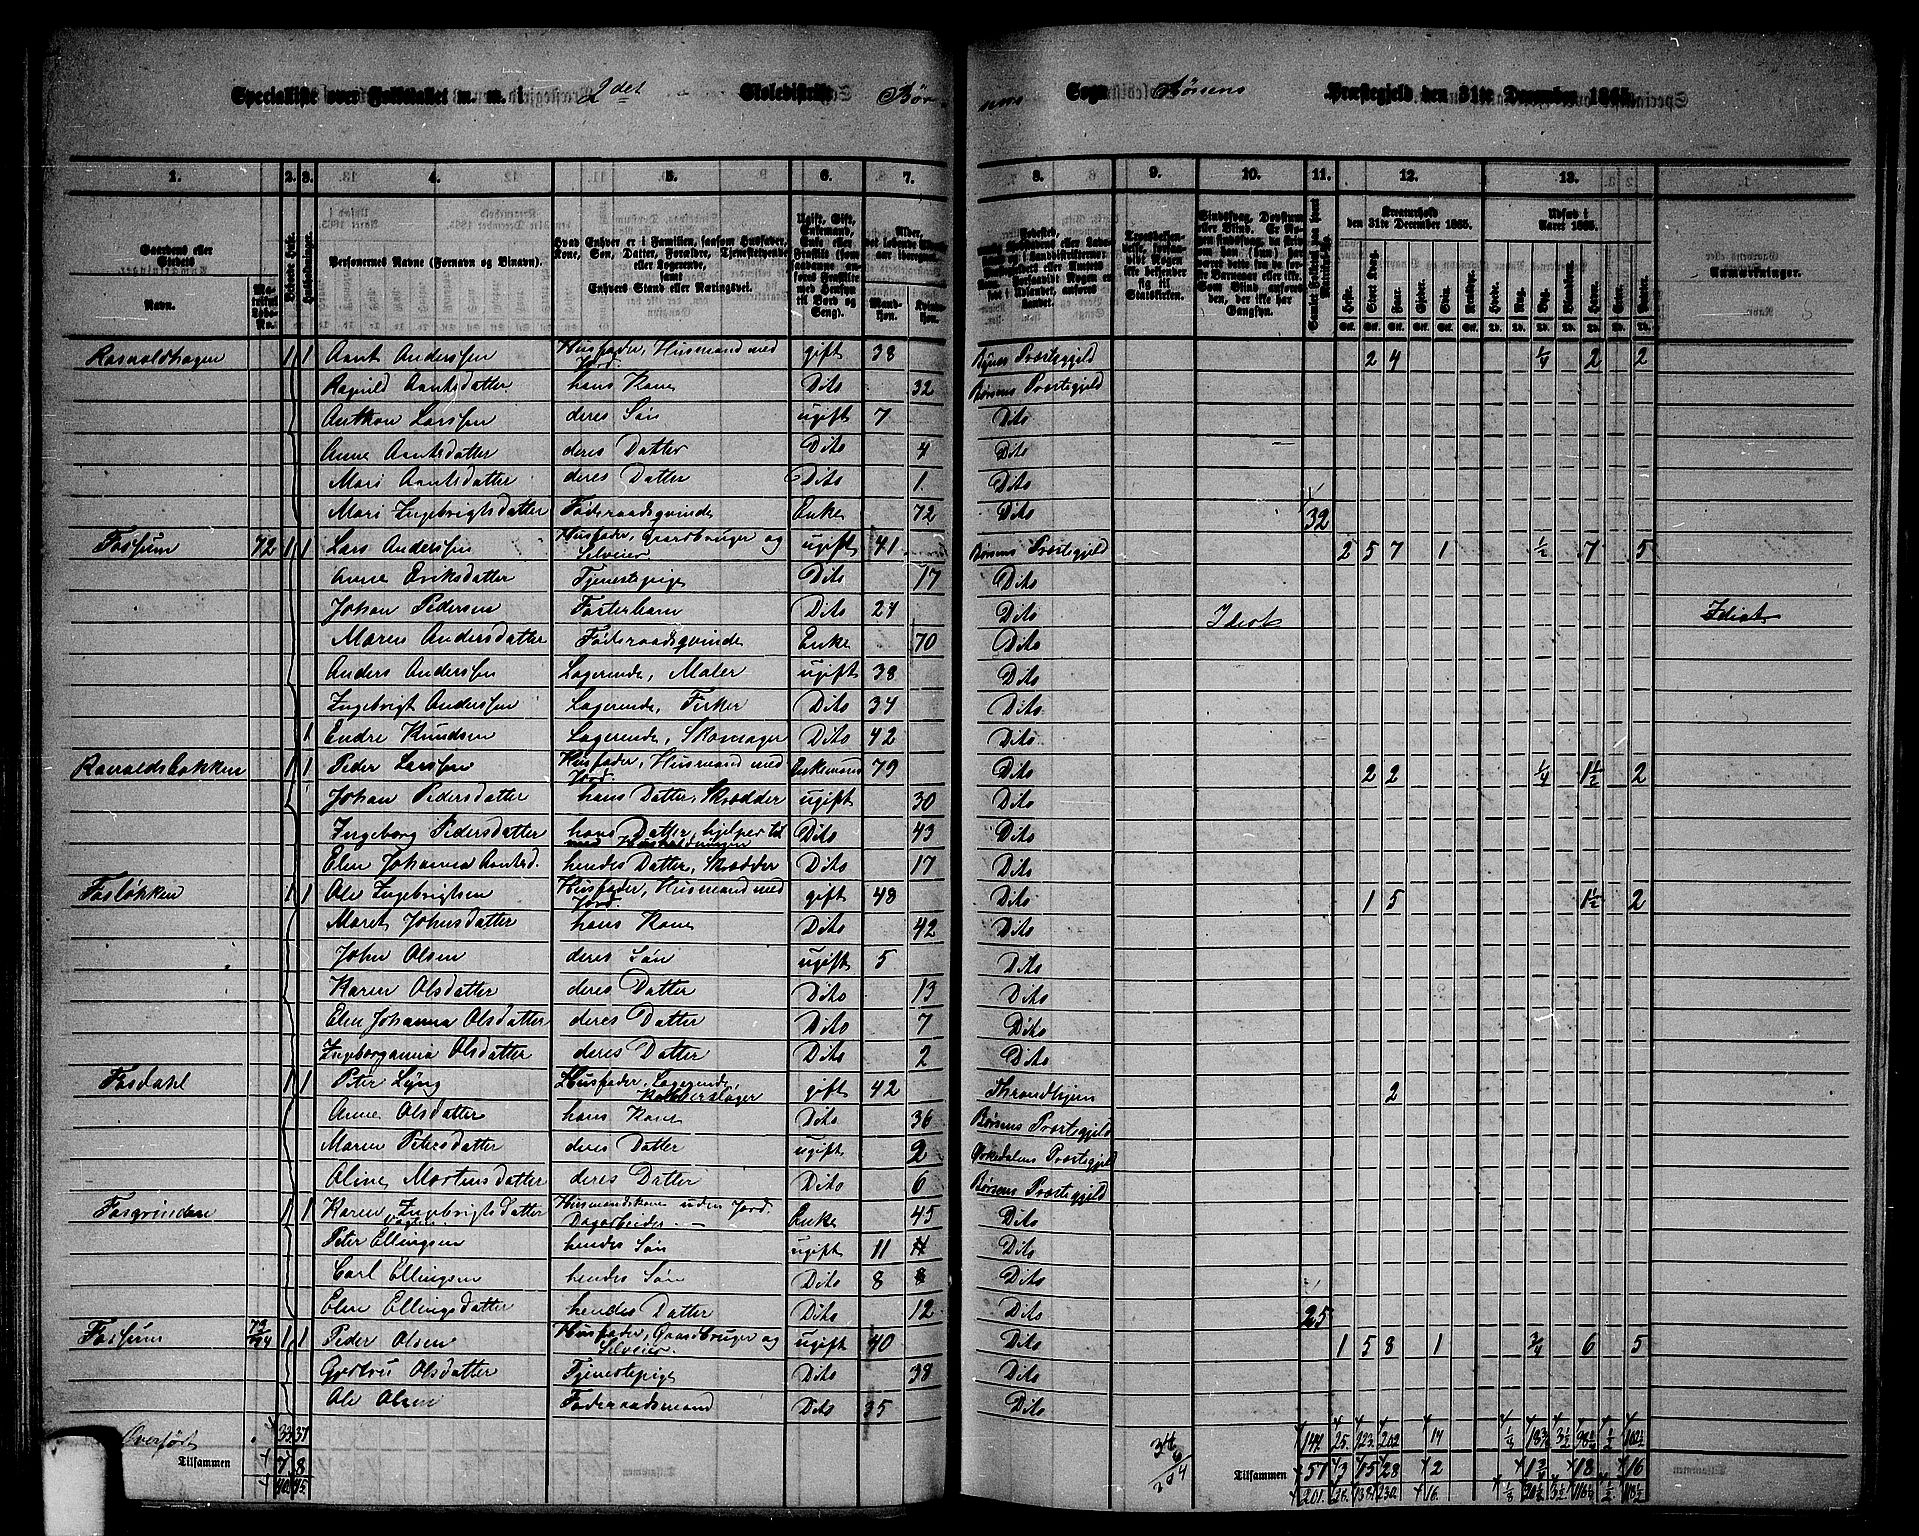 Specialliste over Folketallet m. m. i 2det Skoledistrikt Børsens Sogn Børsens Præstegjeld den 31te December 1865.
1. 2. 3. 4. 5. 6. 7. 8. 9. 10. 11. 12. 13.
Gaardens eller Stedets Navn. Matrikul Løbe-No. Beboede Huse. Husholdninger. Personernes Navne (Fornavn og Binavn). Hvad Enhver er i Familien, saasom Husfader, Kone, Søn, Datter, Forældre, Tjenestetyende eller Logerende, samt Enhvers Stand eller Næringsvei. Ugift, Gift, Enkemand, Enke eller Fraskilt Alder, det løbende Aldersaar iberegnet. Mandkjøn. Kvindekjøn. Fødested, Troesbekjendelse, forsaavidt Nogen ikke bekjender sig til Statskirken. Sindssvag, Døvstum eller Blind. Kreaturhold den 31te December 1865. Udsæd i Aaret 1865. Anmærkninger.
Rasvaldhagen 1 1 Arnt Anderssen Husfader, Husmand med Jord. gift 38 Bynes Præstegjeld 2 4 ¼ 2 2
Ragnild Arntsdatter hans Kone Dito 32 Børsens Præstegjeld
Anthon Larssen deres Søn ugift 7 Dito
Anne Arntsdatter deres Datter Dito 4 Dito
Mari Arntsdatter deres Datter Dito 1 Dito
Mari Ingebrigtsdatter Føderaadsqvinde Enke 72 Dito 32
Fossum 72 1 1 Lars Anderssen Husfader, Gaardbruger og Selveier ugift 41 Børsens Præstegjeld 2 5 7 1 ½ 7 5
Anne Eriksdatter Tjenestepige Dito 17 Dito
Johan Pedersen Fosterbarn Dito 24 Dito Idiot Idiot
Maren Andersdatter Føderaadsqvinde Enke 70 Dito
Anders Anderssen Logerende, Maler ugift 38 Dito
Ingebrigt Anderssen Logerende, Fisker Dito 34 Dito
1 Endre Knudsen Logerende, Skomager Dito 42 Dito
Ravaldsbakken 1 1 Peder Larssen Husfader, Husmand med Jord. Enkemand 79 Dito 2 2 ¼ 1½ 2
Johan Pedersdatter hans Datter, Skrædder ugift 30 Dito
Ingeborg Pedersdatter hans Datter, hjelper til med Husholdningen Dito 43 Dito
Elen Johanna Arntsd. hendes Datter, Skrædder Dito 17 Dito
Fosløkken 1 1 Ole Ingebrigtsen Husfader, Husmand med Jord. gift 48 Dito 1 5 1½ 2
Maret Johnsdatter hans Kone Dito 42 Dito
John Olsen deres Søn ugift 5 Dito
Karen Olsdatter deres Datter Dito 13 Dito
Elen Johanna Olsdatter deres Datter Dito 7 Dito
Ingeborganna Olsdatter deres Datter Dito 2 Dito
Fosdahl 1 1 Peter Lyng Husfader, Logerende, Kobberslager gift 42 Throndhjem 2
Anne Olsdatter hans Kone Dito 36 Børsens Præstegjeld
Maren Petersdatter deres Datter ugift 2 Orkedalens Præstegjeld
Oline Mortensdatter deres Datter Dito 6 Børsens Præstegjeld
Fosgrinden 1 1 Karen Ingebrigtsdatter Husmandskone uden Jord. Dagarbeider Enke 45 Dito
Peter Ellingsen hendes Søn ugift 11 Dito
Carl Ellingsen hendes Søn Dito 8 Dito
Elen Ellingsdatter hendes Datter Dito 12 Dito 25
Fossum 1 1 Peder Olsen Husfader, Gaardbruger og Selveier. ugift 40 Dito 1 5 8 1 ¾ 6 5
Gjertru Olsdatter Tjenestepige Dito 38 Dito
Ole Olsen Føderaadsmand Dito 35 Dito
Overført 33 37 144 25 223 202 14
Tilsammen 7 8 Tilsammen 57 3 15 28 2 18 16
40 45 201 28 238 230 16